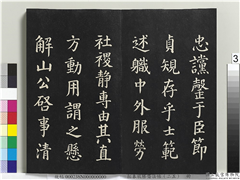 忠讜罄于臣節
貞規存乎士範
述職中外服勞
社稷静專由其直
方動用謂之懸
解山公啓事清
3